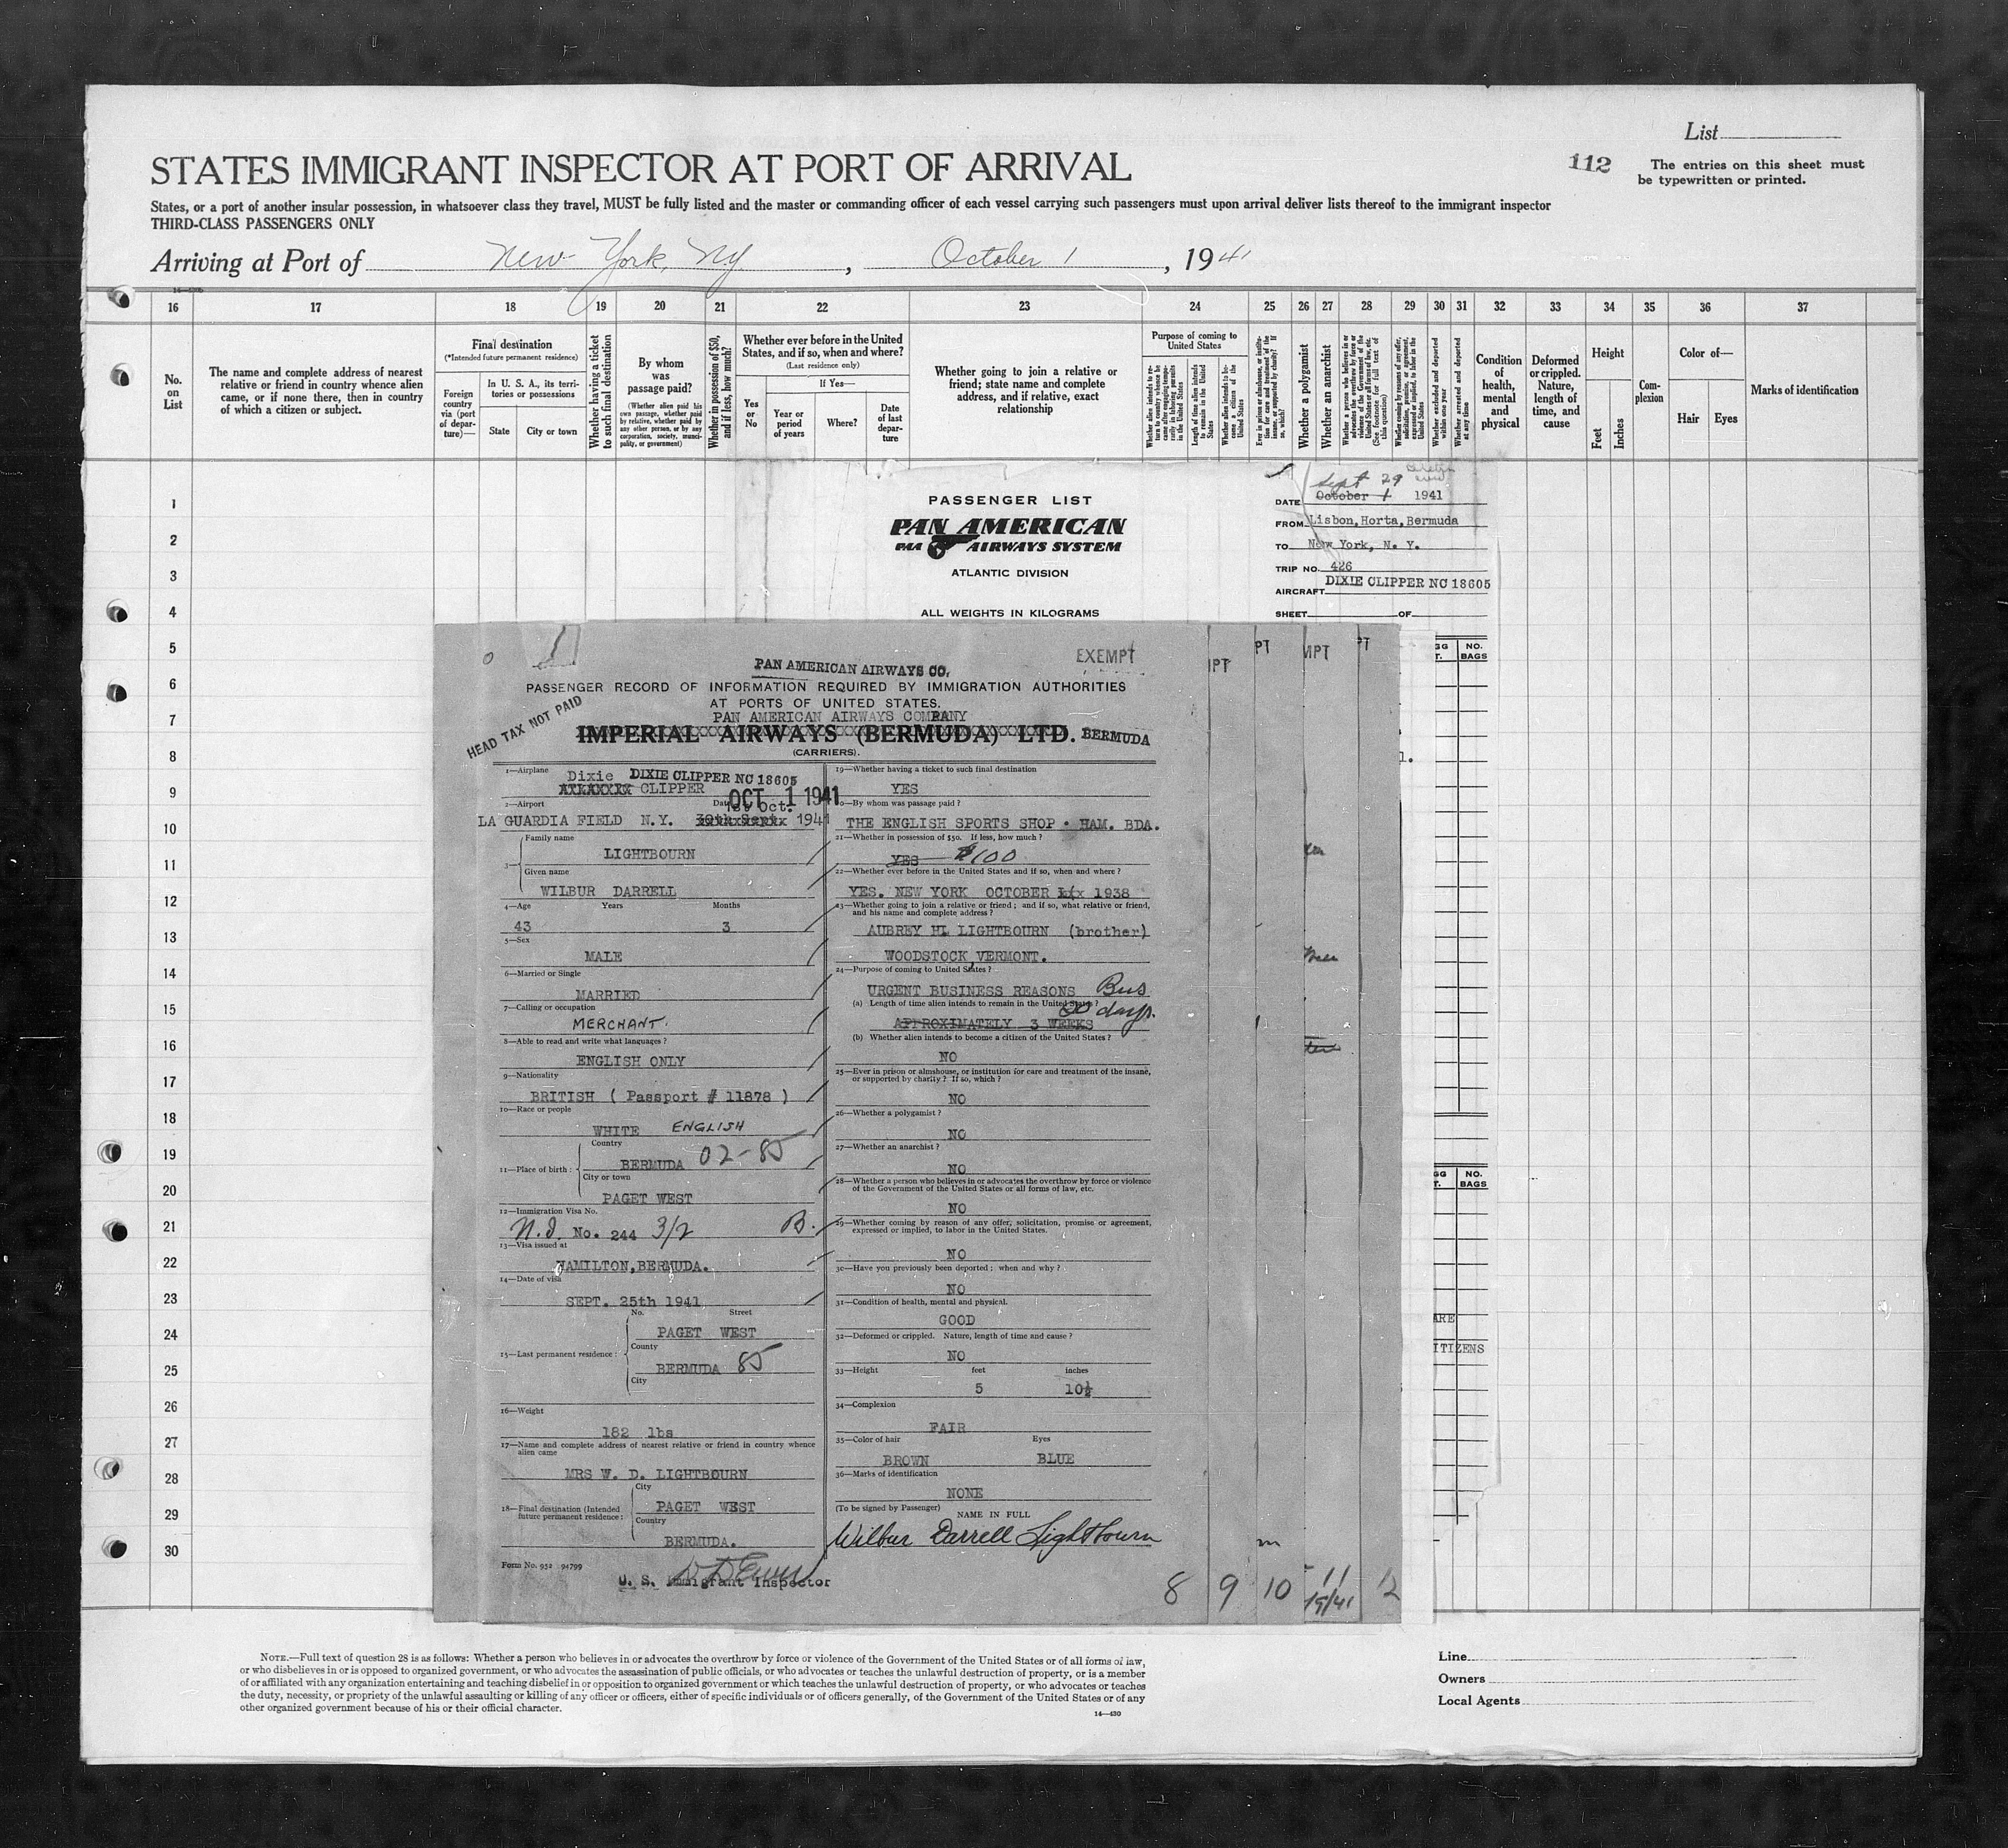 List
112
The entries on this sheet must
be typewritten or printed.
STATES IMMIGRANT INSPECTOR AT PORT OF ARRIVAL
States, or a port of another insular possession, in whatsoever class they travel, MUST be fully listed and the master or commanding officer of each vessel carrying such passengers must upon arrival deliver lists thereof to the immigrant inspector
THIRD-CLASS PASSENGERS ONLY
Arriving at Port of New York, Ny, October 1, 1941
16 17 18 19 20 21 22 23 24 25 26 27 28 29 30 31 32 33 34 35 36 37
No. on List
The name and complete address of nearest relative or friend in country whence alien came, or if none there, then in country of which a citizen or subject.
Final destination
(*Intended future permanent residence)
Foreign country via (port of departure)—
In U. S. A., its territories or possessions
State
City or town
Whether having a ticket to such final destination
By whom was passage paid?
(Whether alien paid his own passage, whether paid by relative, whether paid by any other person, or by any corporation, society, municipality, or government)
Whether in possession of $50, and if less, how much?
Whether ever before in the United States, and if so, when and where?
(Last residence only)
If Yes—
Yes or No
Year or period of years
Where?
Date of last departure
Whether going to join a relative or friend; state name and complete address, and if relative, exact relationship
Purpose of coming to United States
Whether alien intends to return to country whence he came after engaging temporarily in laboring pursuits in the United States
Length of time alien intends to remain in the United States
Whether alien intends to become a citizen of the United States
Ever in prison or almshouse, or institution for care and treatment of the insane, or supported by charity? If so, which?
Whether a polygamist
Whether an anarchist
Whether a person who believes in or advocates the overthrow by force or violence of the Government of the United States or all forms of law, etc. (See footnote for full text of this question)
Whether coming by reason of any offer, solicitation, promise, or agreement, expressed or implied, to labor in the United States
Whether excluded and deported within one year
Whether arrested and deported at any time
Condition of health, mental and physical
Deformed or crippled. Nature, length of time, and cause
Height
Feet
Inches
Complexion
Color of—
Hair
Eyes
Marks of identification
1
2
3
4
5
6
7
8
9
10
11
12
13
14
15
16
17
18
19
20
21
22
23
24
25
26
27
28
29
30
PASSENGER LIST
PAN AMERICAN
PAA AIRWAYS SYSTEM
ATLANTIC DIVISION
ALL WEIGHTS IN KILOGRAMS
Sept 29
DATE October 1 1941
FROM Lisbon, Horta, Bermuda
TO New York, N. Y.
TRIP NO. 426
AIRCRAFT DIXIE CLIPPER NC 18605
SHEET OF
GG T.
NO. BAGS
GG T.
NO. BAGS
ARE
ITIZENS
EXEMPT
IPT
PT
MPT
PT
PAN AMERICAN AIRWAYS CO.
PASSENGER RECORD OF INFORMATION REQUIRED BY IMMIGRATION AUTHORITIES
AT PORTS OF UNITED STATES.
HEAD TAX NOT PAID
PAN AMERICAN AIRWAYS COMPANY
IMPERIAL AIRWAYS (BERMUDA) LTD. BERMUDA
(CARRIERS).
1—Airplane Dixie DIXIE CLIPPER NC 18605
CLIPPER
2—Airport Date OCT 1 1941
1st Oct.
LA GUARDIA FIELD N.Y. 30th Sept 1941
3—
Family name
LIGHTBOURN
Given name
WILBUR DARRELL
4—Age Years Months
43 3
5—Sex
MALE
6—Married or Single
MARRIED
7—Calling or occupation
MERCHANT.
8—Able to read and write what languages?
ENGLISH ONLY
9—Nationality
BRITISH ( Passport # 11878 )
10—Race or people
WHITE ENGLISH
11—Place of birth:
Country
BERMUDA 02-85
City or town
PAGET WEST
12—Immigration Visa No.
N.I. No. 244 3/2 B.
13—Visa issued at
HAMILTON, BERMUDA.
14—Date of visa
SEPT. 25th 1941
No. Street
PAGET WEST
15—Last permanent residence:
County
BERMUDA 85
City
16—Weight
182 lbs
17—Name and complete address of nearest relative or friend in country whence alien came
MRS W. D. LIGHTBOURN
18—Final destination (Intended future permanent residence:
City
PAGET WEST
Country
BERMUDA.
Form No. 952 94799
U. S. Immigrant Inspector
19—Whether having a ticket to such final destination
YES
20—By whom was passage paid?
THE ENGLISH SPORTS SHOP · HAM. BDA.
21—Whether in possession of $50. If less, how much?
YES $100
22—Whether ever before in the United States and if so, when and where?
YES. NEW YORK OCTOBER 1938
23—Whether going to join a relative or friend; and if so, what relative or friend,
and his name and complete address?
AUBREY H. LIGHTBOURN (brother)
WOODSTOCK, VERMONT.
24—Purpose of coming to United States?
URGENT BUSINESS REASONS Bus
(a) Length of time alien intends to remain in the United States?
30 days.
APPROXIMATELY 3 WEEKS
(b) Whether alien intends to become a citizen of the United States?
NO
25—Ever in prison or almshouse, or institution for care and treatment of the insane,
or supported by charity? If so, which?
NO
26—Whether a polygamist?
NO
27—Whether an anarchist?
NO
28—Whether a person who believes in or advocates the overthrow by force or violence
of the Government of the United States or all forms of law, etc.
NO
29—Whether coming by reason of any offer, solicitation, promise or agreement,
expressed or implied, to labor in the United States.
NO
30—Have you previously been deported; when and why?
NO
31—Condition of health, mental and physical.
GOOD
32—Deformed or crippled. Nature, length of time and cause?
NO
33—Height feet inches
5 10½
34—Complexion
FAIR
35—Color of hair Eyes
BROWN BLUE
36—Marks of identification
NONE
(To be signed by Passenger)
NAME IN FULL
Wilbur Darrell Lightbourn
8 9 10 11 12
19/41
NOTE.—Full text of question 28 is as follows: Whether a person who believes in or advocates the overthrow by force or violence of the Government of the United States or of all forms of law,
or who disbelieves in or is opposed to organized government, or who advocates the assassination of public officials, or who advocates or teaches the unlawful destruction of property, or is a member
of or affiliated with any organization entertaining and teaching disbelief in or opposition to organized government or which teaches the unlawful destruction of property, or who advocates or teaches
the duty, necessity, or propriety of the unlawful assaulting or killing of any officer or officers, either of specific individuals or of officers generally, of the Government of the United States or of any
other organized government because of his or their official character.
14—430
Line
Owners
Local Agents